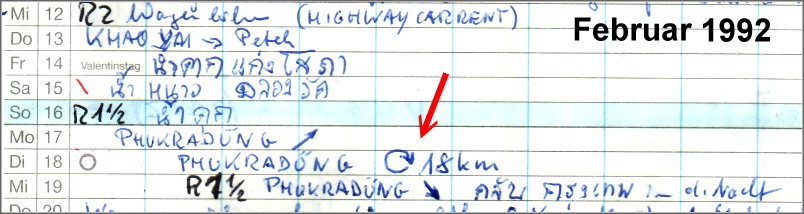 Mi 12 R2 Wagen leihen (HIGHWAY CAR RENT)
Februar 1992
Do 13 KHAO YAI → Petch
Fr 14 Valentinstag น้ำตก แก่งโสภา
Sa 15 น้ำ หนาว
So 16 R1½ น้ำตก
Mo 17 PHUKRADŪNG ↗
Di 18 PHUKRADŪNG 18 km
Mi 19 R1½ PHUKRADŪNG ↘ กลับ กรุงเทพ in d. Nacht
Do 20